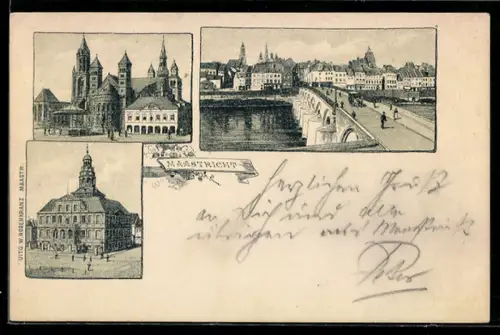 MAASTRICHT
UITG. W. ROSENKRANZ MAASTR.
Herzlichen Gruß
an Dich und alle
übrigen aus Maastricht
Peter